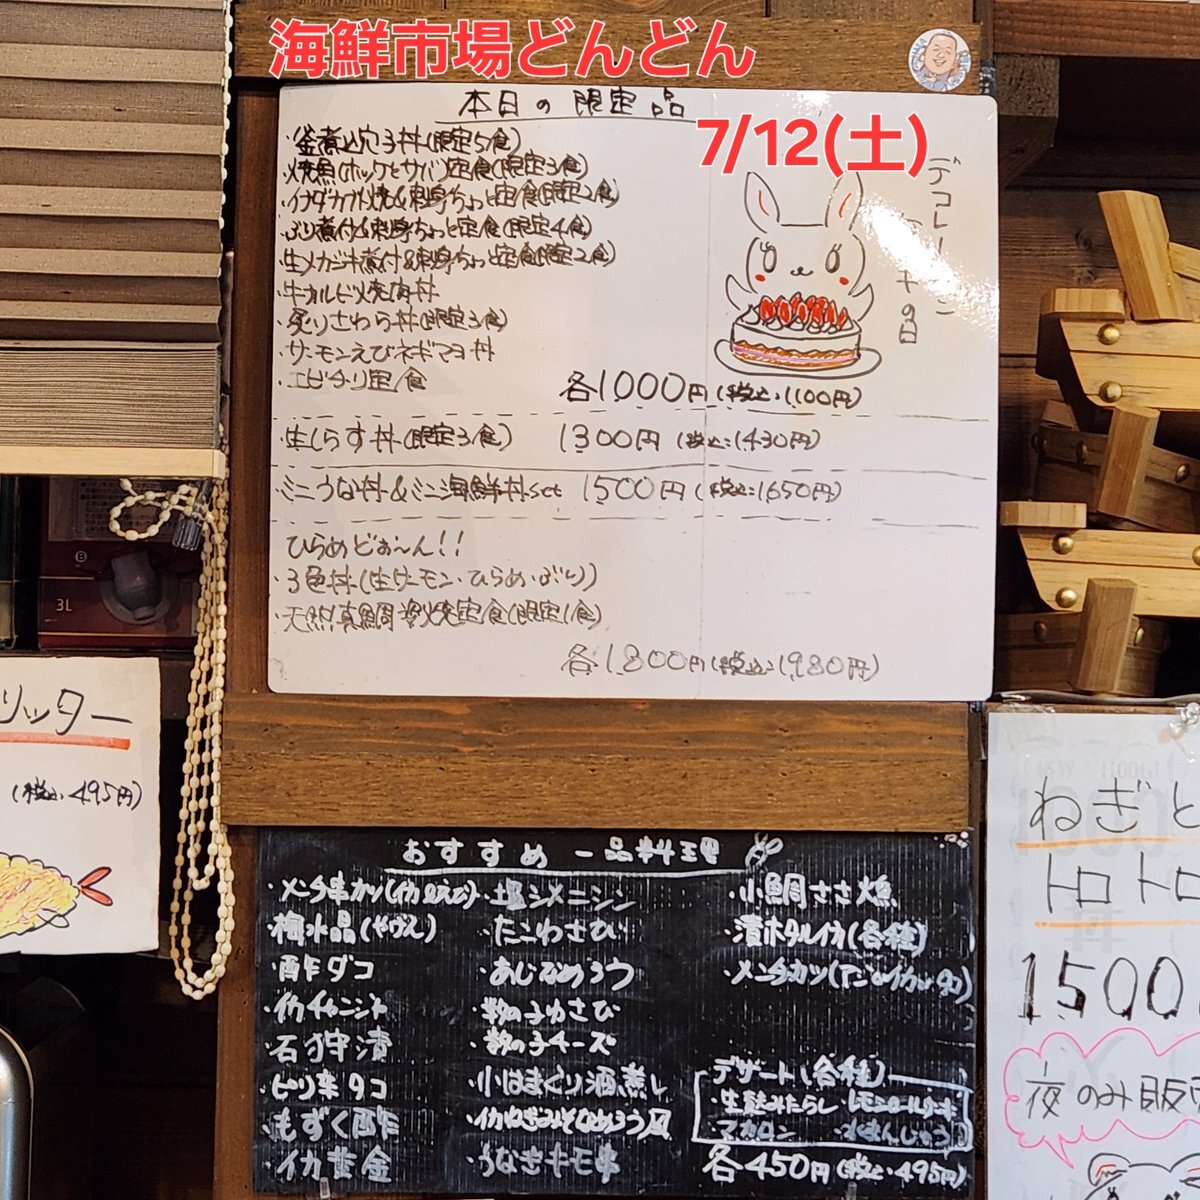 海鮮市場どんどん
7/12(土)
本日の限定品
・釜煮込穴子丼(限定5食)
・焼魚(ホッケとサバ)定食(限定3食)
・イナダカブト焼&刺身ちょっと定食(限定2食)
・ぶり煮付&刺身ちょっと定食(限定4食)
・生メカジキ煮付&刺身ちょっと定食(限定2食)
・牛カルビ焼肉丼
・炙りさわら丼(限定3食)
・サーモンえびネギマヨ丼
・エビチリ定食
各1000円(税込:1100円)
デコレーションケーキの日
・生しらす丼(限定3食) 1300円(税込:1430円)
・ミニうな丼&ミニ海鮮丼set 1500円(税込:1650円)
ひらめどぉ〜ん!!
・3色丼(生サーモン・ひらめ・ぶり)
・天然真鯛 焼定食(限定1食)
各1800円(税込:1980円)
リッター
(税込:495円)
おすすめ一品料理
・メンチ串カツ(イカ&えび)
・梅水晶(やげん)
・酢ダコ
・イカチャンジャ
・石狩漬
・ピリ辛タコ
・もずく酢
・イカ黄金
・塩〆ニシン
・たこわさび
・あじなめろう
・数の子わさび
・数の子チーズ
・小はまぐり酒蒸し
・イカねぎみそなめろう風
・うなぎキモ串
・小鯛ささ漬
・漬ホタルイカ(各種)
・メンチカツ(アジorイカorタコ)
デザート(各種)
・生麩みたらし
・レモンロールケーキ
・マカロン
・水まんじゅう
各450円(税込:495円)
ねぎと
トロトロ
1500
夜のみ販